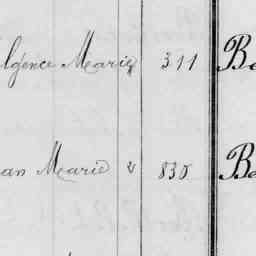 lgence Marie 311 Be
an Marie v 835 Be